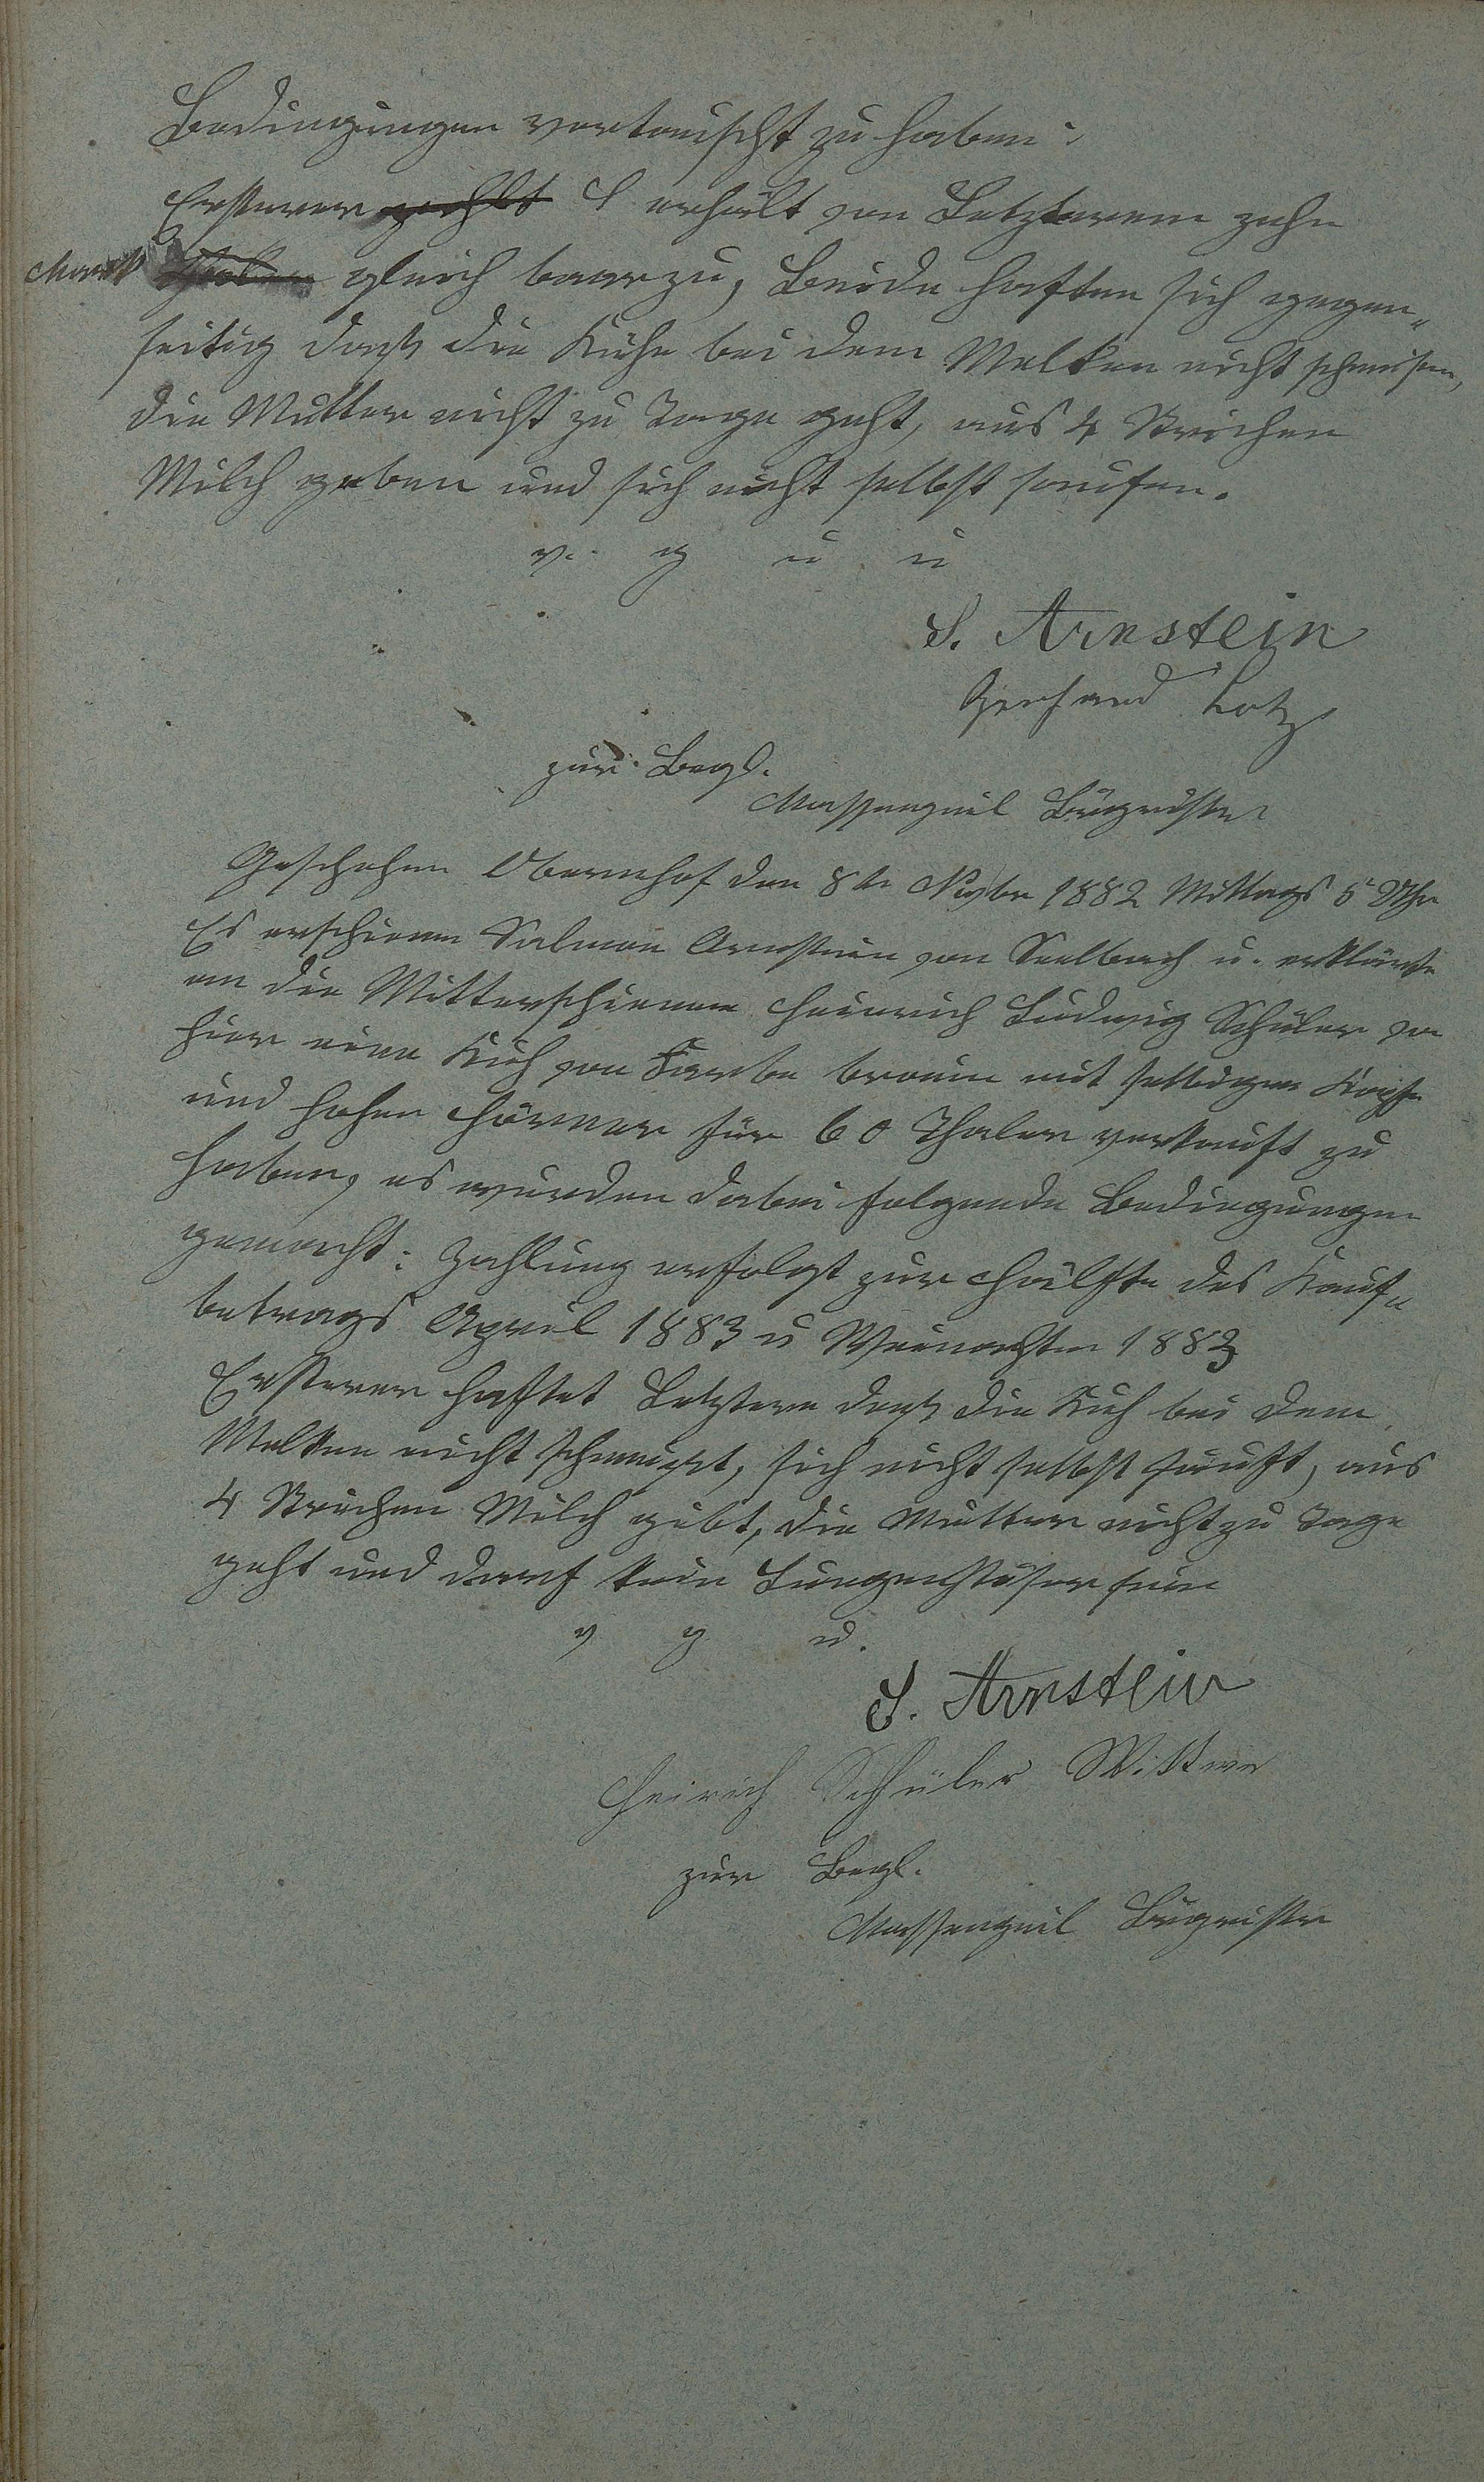 Bedingungen vertauscht zu haben:
Ersterer zahlt erhält von Letzterem zehn
Mark Thaler gleich baar zu, Beide haften sich gegen„
seitig daß die Kühe bei dem Melken nicht schmeisen,
die Mutter nicht zu Tage geht, aus 4 Strichen
Milch geben und sich nicht selbst saufen.
v. g u u
S. Arnstein
Gerhard Lotz
zur Begl.
Massengeil Bürgrmstr
Geschehen Obernhof den 8te Novbr 1882 Mittags 5 Uhr
Es erschienen Salmon Arnstein von Seelbach u. erklärte
an die Miterschienene Heinrich Ludwig Schüler von
hier eine Kuh von Farbe braun mit selbigem Kopfe
und hohen Hörner für 60 Thaler verkauft zu
haben, es wurden dabei folgende Bedingungen
gemacht: Zahlung erfolgt zur Hälfte des Kauf„
betrags April 1883 u Weinachten 1883
Ersterer haftet Letztere daß die Kuh bei dem
Melken nicht schmeißt, sich nicht selbst sauft, aus
4 Strichen Milch gibt, die Mutter nicht zu Tage
geht und darf kein Lungenstöser sein
v g u.
S. Arnstein
Heirich Schüler Wittwe
zur Begl.
Massengeil Bürgrmstr